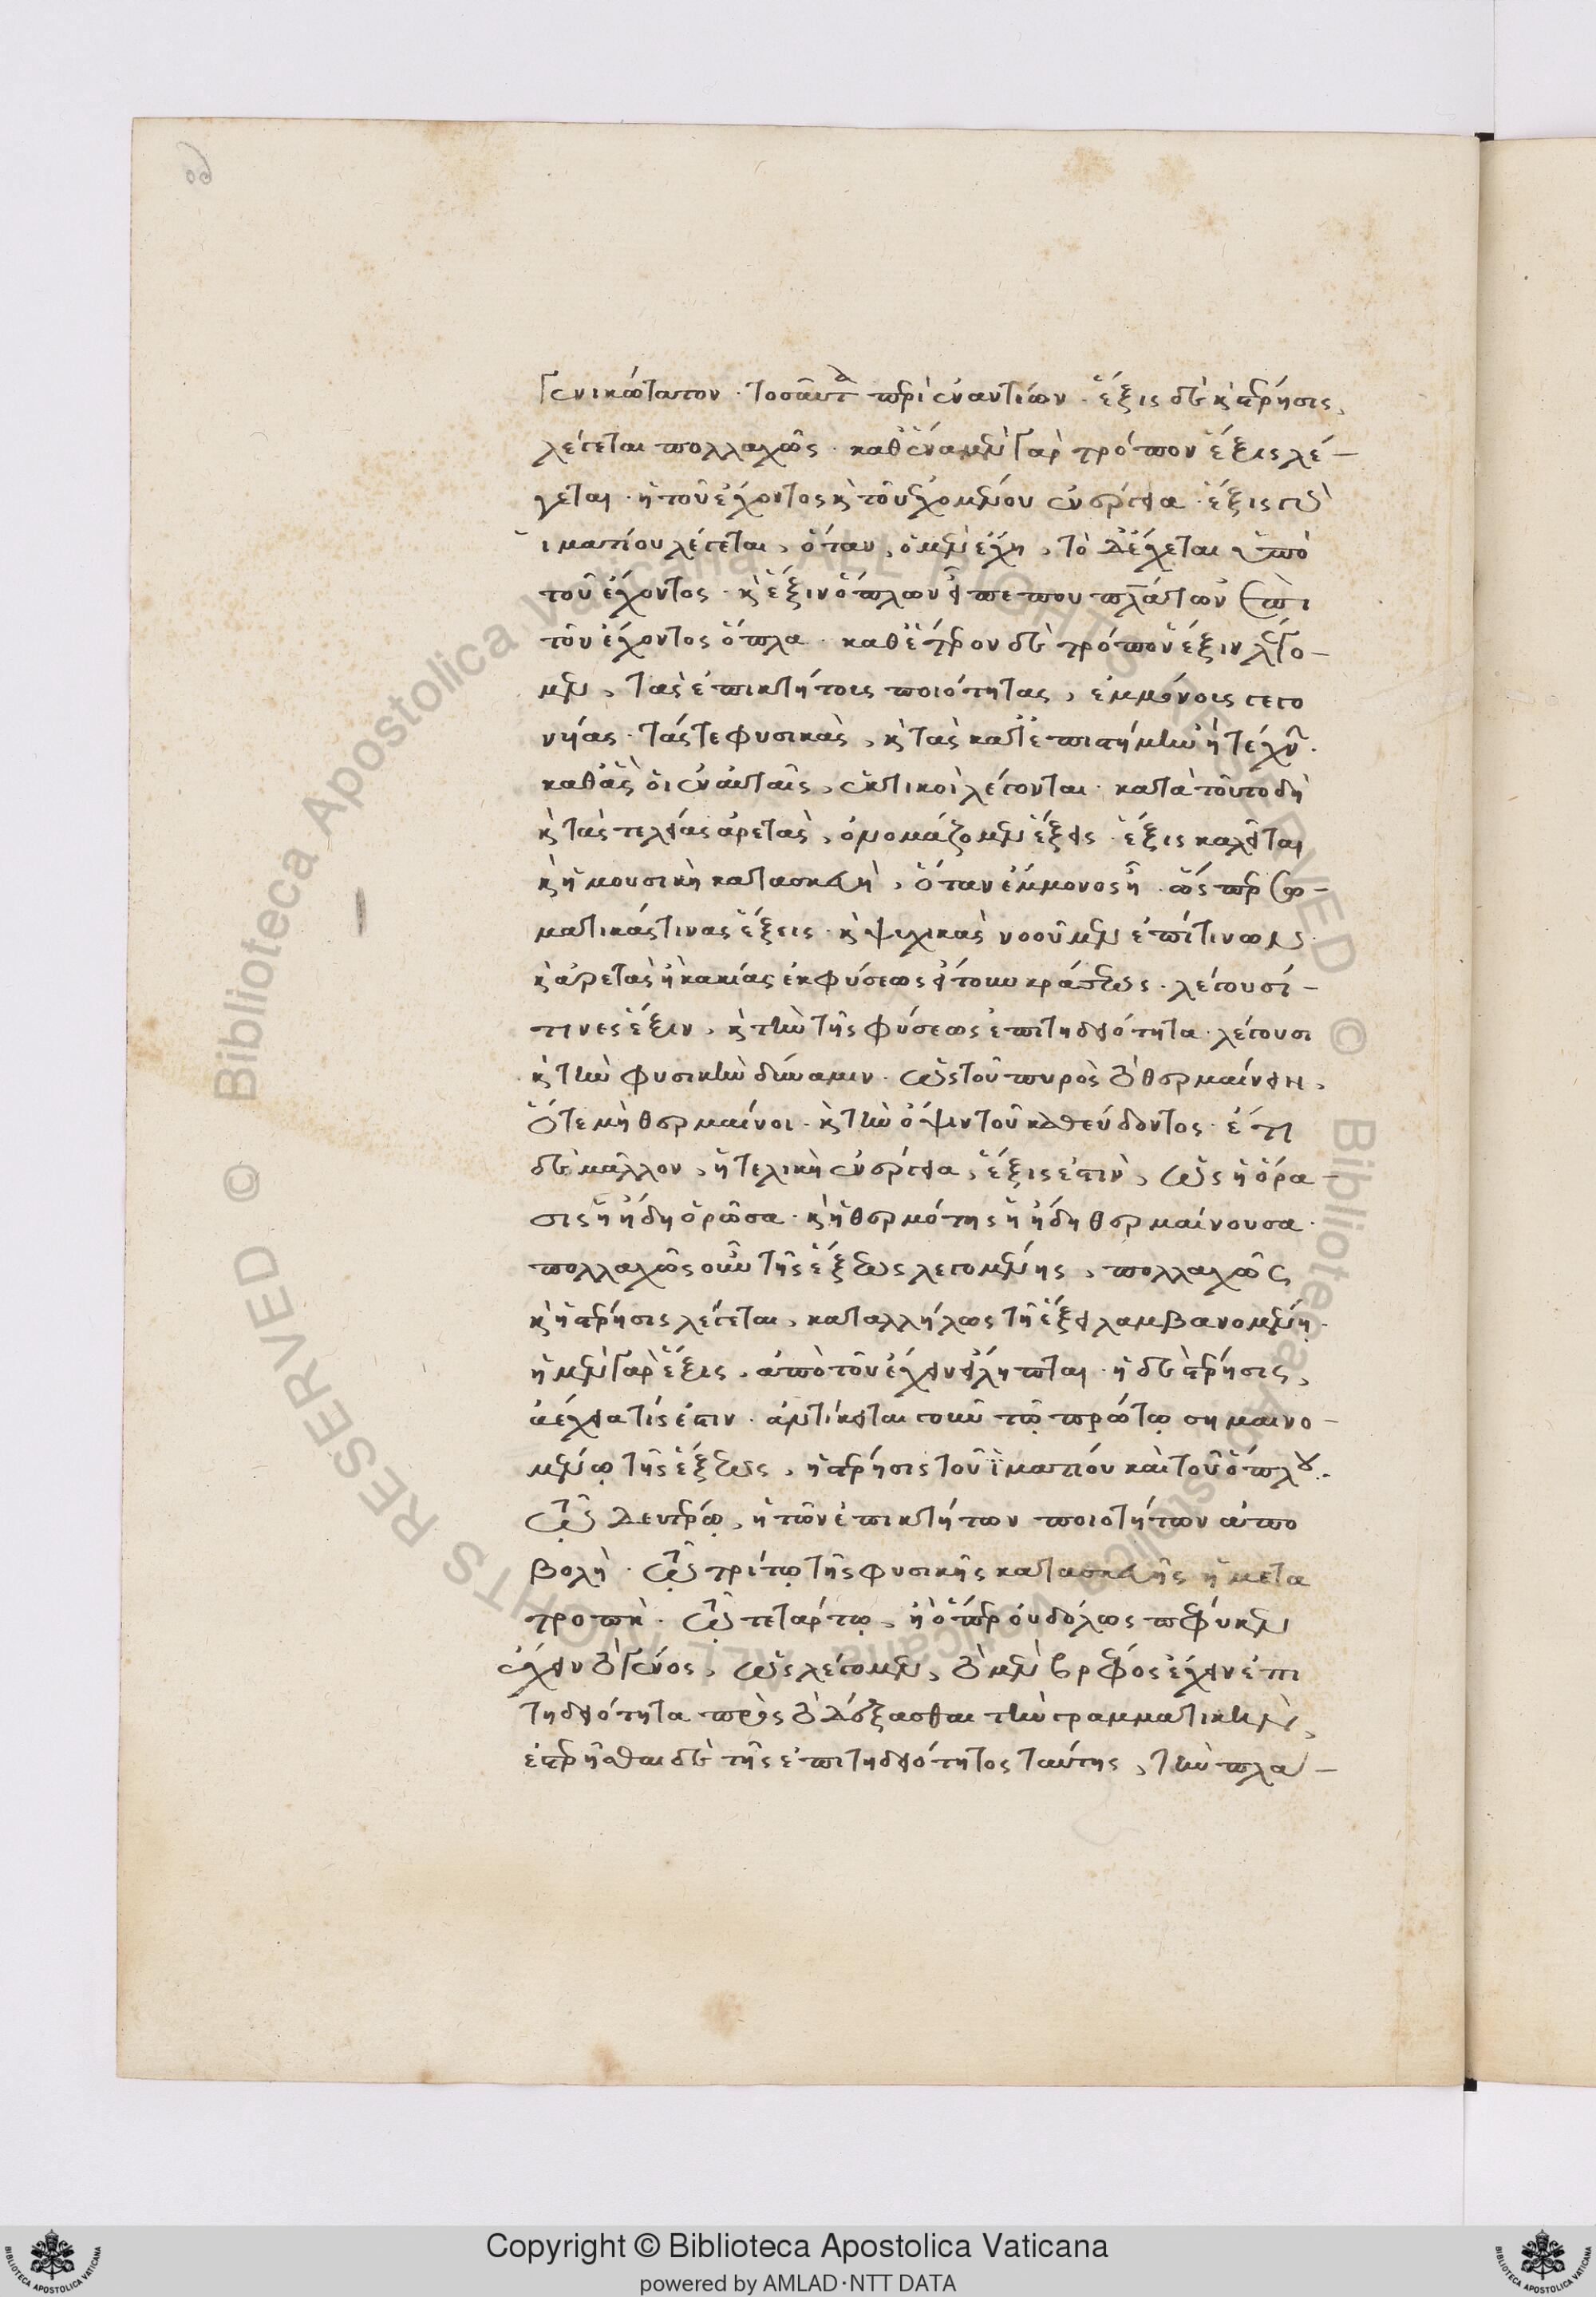 γενικώτατον · τοσαῦτα περὶ ἐναντίων · ἕξις δὲ κ στέρησις,
λέγεται πολλαχῶς · καθ ἕνα μὲν γὰρ τρόπον ἕξις λέ-
γεται · ἡ τοῦ ἔχοντος κ τοῦ ἐχομένου ἐνέργεια · ἕξις γὰρ
ἱματίου λέγεται, ὅταν, ὁ μὲν ἔχη, τὸ δὲ ἔχεται ὑπὸ
τοῦ ἔχοντος · κ ἕξιν ὅπλων εἶπέ που πλάτων ἐπὶ
τοῦ ἔχοντος ὅπλα · καθ ἕτερον δὲ τρόπον ἕξιν λέγο-
μεν, τὰς ἐπικτήτους ποιότητας, ἐμμόνους γεγο
νυίας · τάς τε φυσικὰς, κ τὰς κατ ἐπιστήμην ἢ τέχνην.
καθ ἃς οἱ ἐν αὐταῖς, ἑκτικοὶ λέγονται · κατὰ τοῦτο δὴ
κ τὰς τελείας ἀρετὰς, ὀνομάζομεν ἕξεις · ἕξις καλεῖται
κ ἡ μουσικὴ κατασκευὴ, ὅταν ἔμμονος ἦ · ὥσπερ σω-
ματικάς τινας ἕξεις · κ ψυχικὰς νοοῦμεν ἐπί τινων ·
κ ἀρετὰς ἢ κακίας ἐκ φύσεως ἤτοι κράσεως · λέγουσί-
τινες ἕξιν, κ τὴν τῆς φύσεως ἐπιτηδειότητα · λέγουσι
κ τὴν φυσικὴν δύναμιν · ὡς τοῦ πυρὸς τὸ θερμαίνειν,
ὅτε μὴ θερμαίνοι · κ τὴν ὄψιν τοῦ καθεύδοντος · ἔτι
δὲ μᾶλλον, ἡ τελικὴ ἐνέργεια, ἕξις ἐστὶν, ὡς ἡ ὅρα-
σις ἡ ἤδη ὁρῶσα · κ ἡ θερμότης ἡ ἤδη θερμαίνουσα ·
πολλαχῶς οὖν τῆς ἕξεως λεγομένης, πολλαχῶς
κ ἡ στέρησις λέγεται, καταλλήλως τῆ ἕξει λαμβανομένη ·
ἡ μὲν γὰρ ἕξις, ἀπὸ τοῦ ἔχειν εἴληπται · ἡ δὲ στέρησις,
ἀεχεία τίς ἐστιν · ἀντίκειται τοίνυν τῷ πρώτῳ σημαινο-
μένῳ τῆς ἕξεως, ἡ στέρησις τοῦ ἱματίου καὶ τοῦ ὅπλου ·
τῷ δευτέρῳ, ἡ τῶν ἐπικτήτων ποιοτήτων ἀπο
βολὴ · τῷ τρίτῳ τῆς φυσικῆς κατασκευῆς ἡ μετα
τροπὴ · τῷ τετάρτῳ, ἡ ὅπερ οὐδόλως πέφυκεν
ἔχειν τὸ γένος, ὡς λέγομεν, τὸ μὲν βρέφος ἔχειν ἐπι
τηδειότητα πρὸς τὸ δέξασθαι τὴν γραμματικὴν,
ἐστερῆσθαι δὲ τῆς ἐπιτηδειότητος ταύτης, τὴν πλα-
Copyright © Biblioteca Apostolica Vaticana
powered by AMLAD·NTT DATA